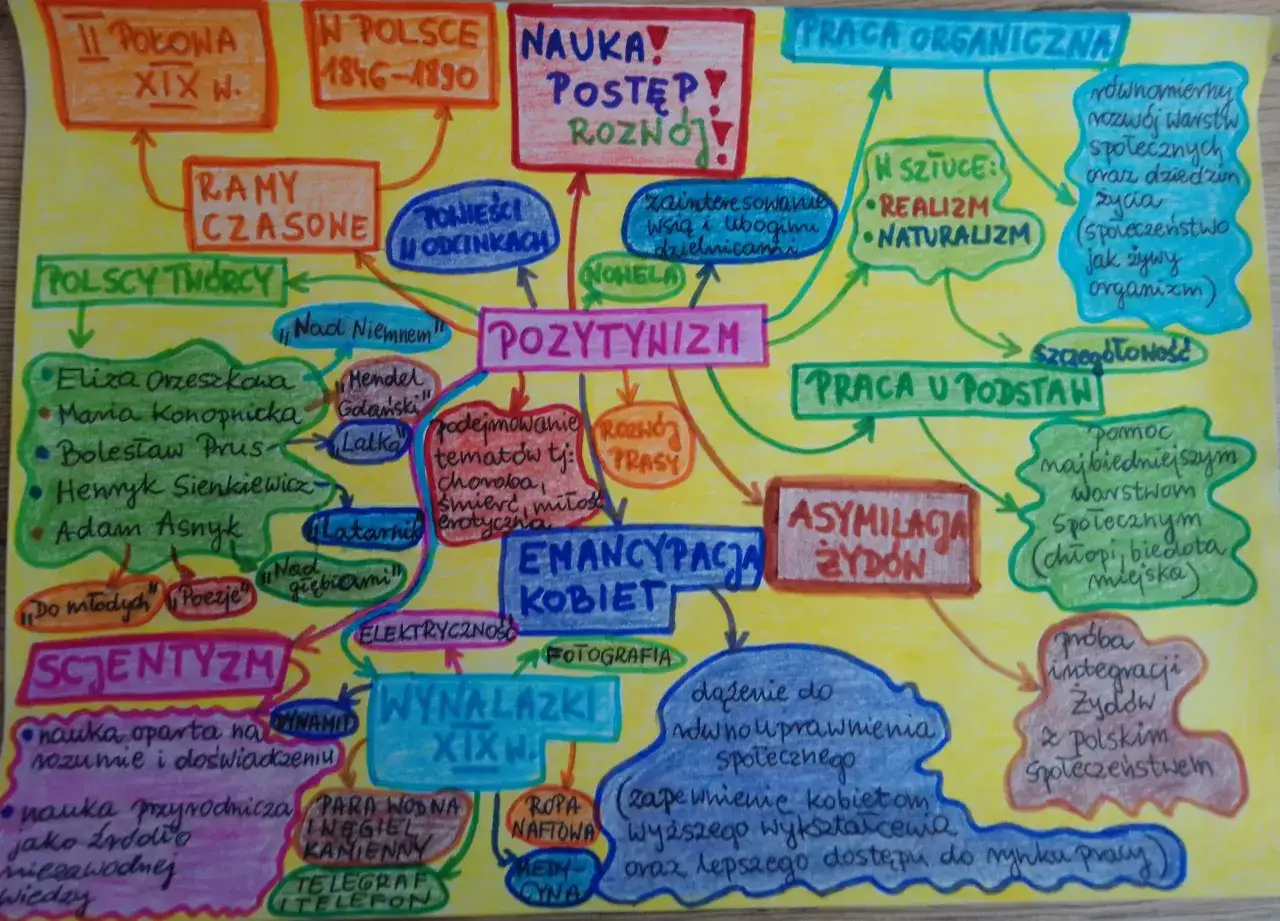 II POŁOWA
XIX W.
W POLSCE
1846-1890
NAUKA!
POSTĘP!
ROZWÓJ!
PRACA ORGANICZNA
równomierny
rozwój warstw
społecznych
oraz dziedzin
życia
(społeczeństwo
jak żywy
organizm)
RAMY
CZASOWE
POWIEŚCI
W ODCINKACH
zainteresowanie
wsią i ubogimi
dzielnicami
W SZTUCE:
• REALIZM
• NATURALIZM
NOWELA
POLSCY TWÓRCY
POZYTYWIZM
SZCZEGÓŁOWOŚĆ
PRACA U PODSTAW
• Eliza Orzeszkowa
• Maria Konopnicka
• Bolesław Prus
• Henryk Sienkiewicz
• Adam Asnyk
„Nad Niemnem"
„Mendel
Gdański"
„Lalka"
„Latarnik"
„Nad
głębiami"
„Do młodych"
„Poezje"
podejmowanie
tematów tj:
choroba,
śmierć, miłość
erotyczna
ROZWÓJ
PRASY
pomoc
najbiedniejszym
warstwom
społecznym
(chłopi, biedota
miejska)
ASYMILACJA
ŻYDÓW
EMANCYPACJA
KOBIET
próba
integracji
Żydów
z polskim
społeczeństwem
SCJENTYZM
• nauka oparta na
rozumie i doświadczeniu
• nauka przyrodnicza
jako źródło
niezawodnej
wiedzy
ELEKTRYCZNOŚĆ
FOTOGRAFIA
DYNAMIT
WYNALAZKI
XIX W.
PARA WODNA
I WĘGIEL
KAMIENNY
ROPA
NAFTOWA
TELEGRAF
I TELEFON
MEDY-
CYNA
dążenie do
równouprawnienia
społecznego
(zapewnienie kobietom
wyższego wykształcenia
oraz lepszego dostępu do rynku pracy)